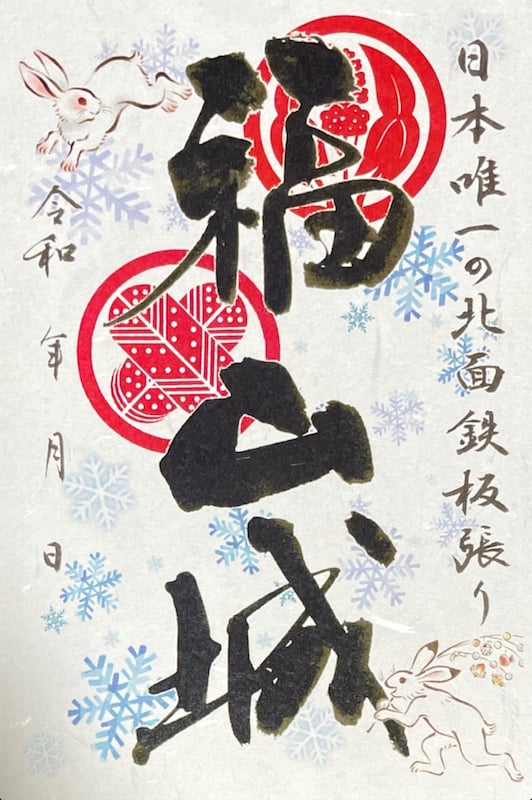 日本唯一の北面鉄板張り
福山城
令和 年 月 日